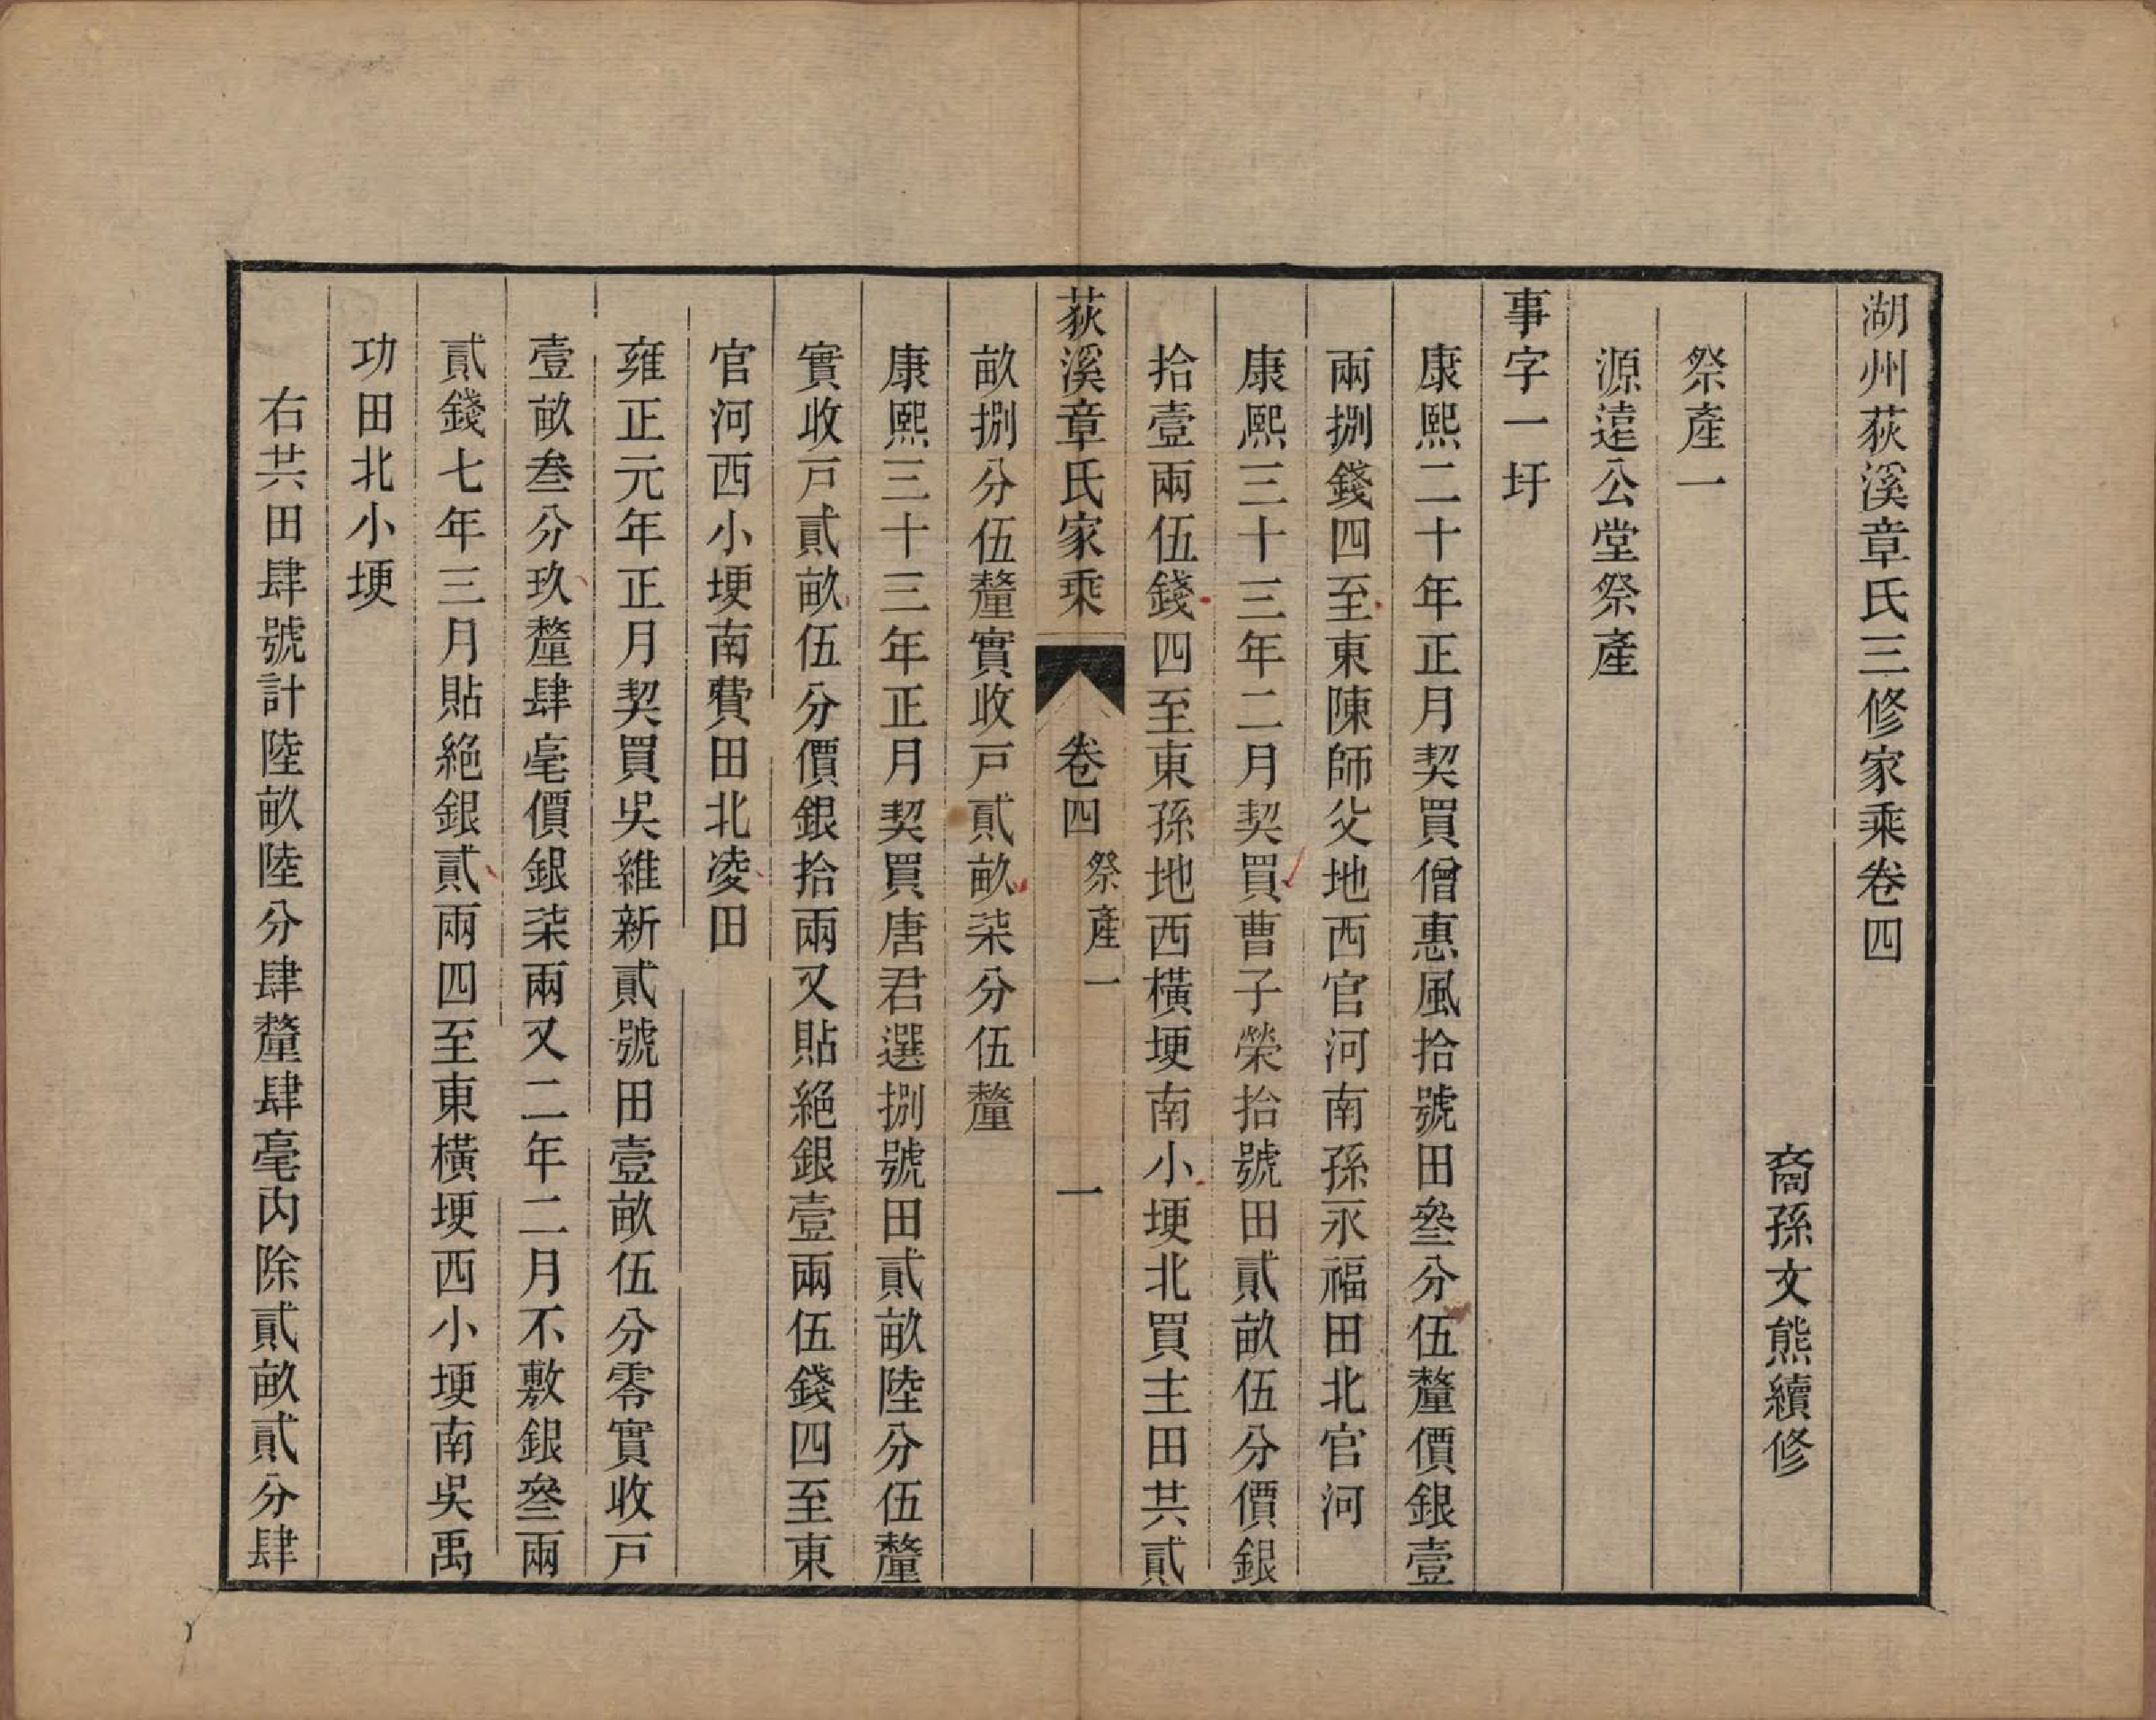 湖州荻溪章氏三修家乘卷四
裔孫文熊續修
祭產一
源遠公堂祭產
事字一圩
康熙二十年正月契買僧惠風拾號田叄分伍釐價銀壹
兩捌錢四至東陳師父地西官河南孫永福田北官河
康熙三十三年二月契買曹子榮拾號田貳畝伍分價銀
拾壹兩伍錢四至東孫地西橫埂南小埂北買主田共貳
荻溪章氏家乘 卷四 祭產一 一
畝捌分伍釐實收戸貳畝柒分伍釐
康熙三十三年正月契買唐君選捌號田貳畝陸分伍釐
實收戸貳畝伍分價銀拾兩又貼絕銀壹兩伍錢四至東
官河西小埂南費田北凌田
雍正元年正月契買吳維新貳號田壹畝伍分零實收戸
壹畝叁分玖釐肆毫價銀柒兩又二年二月不敷銀叄兩
貳錢七年三月貼絕銀貳兩四至東橫埂西小埂南吳禹
功田北小埂
右共田肆號計陸畝陸分肆釐肆毫內除貳畝貳分肆